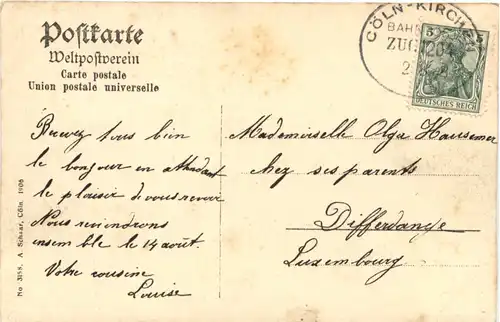 Postkarte
Weltpostverein
Carte postale
Union postale universelle
CÖLN-KIRCHEN
BAHN
ZUG 1204
DEUTSCHES REICH
Mademoiselle Olga Hausemer
chez ses parents
Differdange
Luxembourg
Recevez tous bien
le bonjour en attendant
le plaisir de vous revoir
Nous reviendrons
ensemble le 14 août.
Votre cousine
Louise
No 3158. A. Schaar, Cöln. 1906